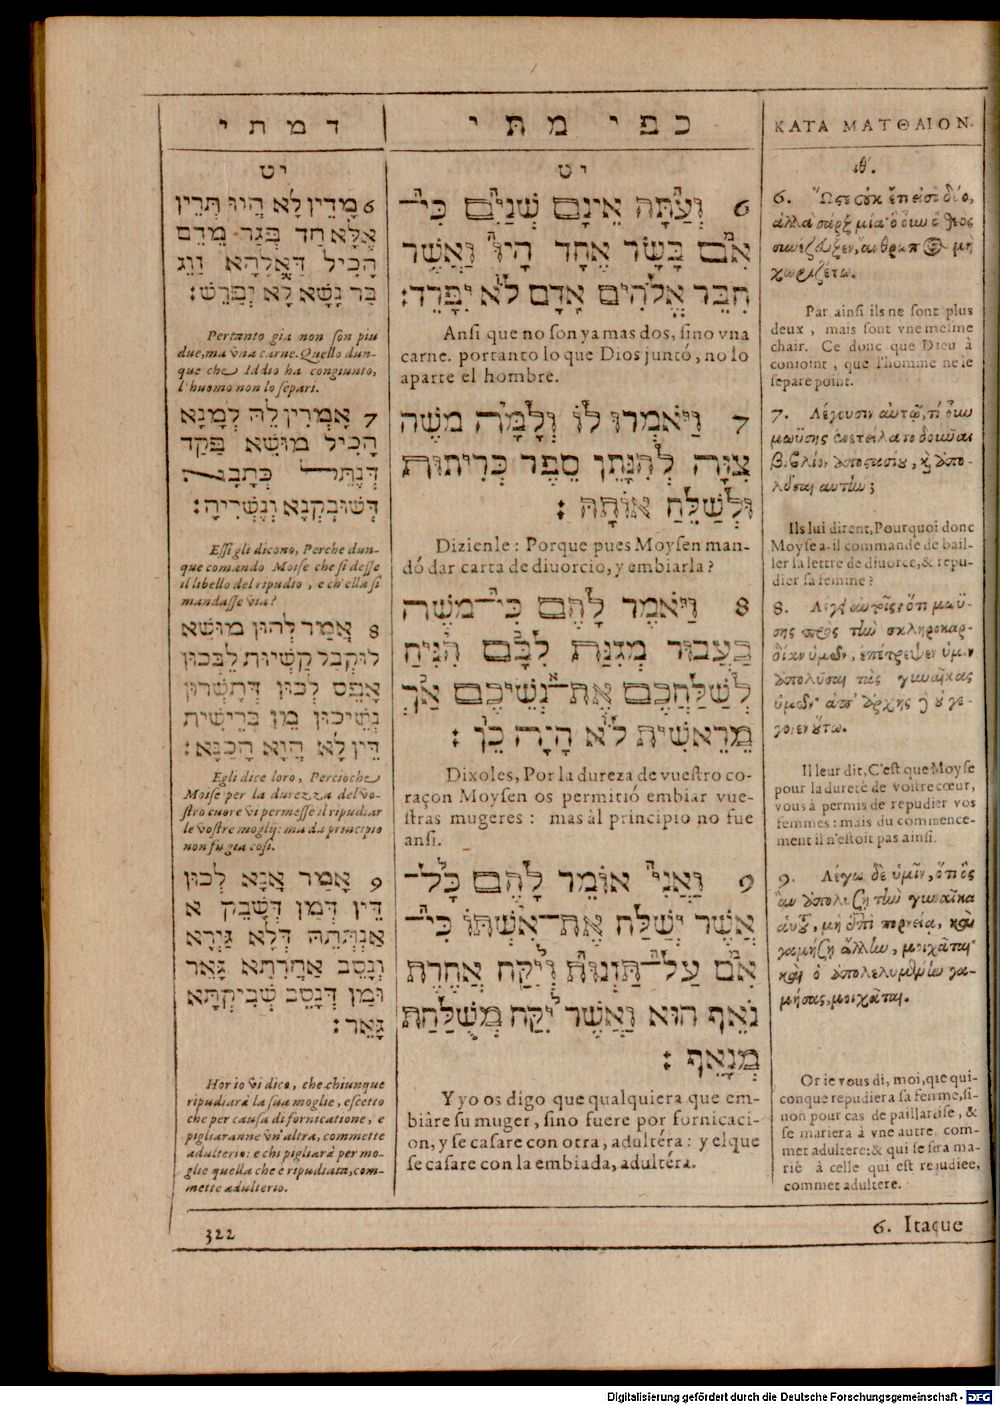 דמתי
יט
6 מָדֵין לָא הֲווּ תְּרֵין
אֶלָּא חַד פְּגַר מֵדֵם
הָכִיל דַּאֲלָהָא זַוֵּג
בַּר נָשָׁא לָא נְפַרֵשׁ:
Pertanto gia non son piu
due, ma vna carne. Quello dun-
que che Iddio ha congiunto,
l'huomo non lo separi.
7 אָמְרִין לֵהּ לְמָנָא
הָכִיל מוּשֵׁא פַּקֵד
דְּנֶתֵּל כְּתָבָא
דְּשׁוּבְקָנָא וְנֶשְׁרִיהָ:
Essi gli dicono, Perche dun-
que comando Moise che si desse
il libello del ripudio, e ch'ella si
mandasse via?
8 אֲמַר לְהוּן מוּשֵׁא
לוּקְבַל קַשְׁיוּת לֵבְּכוּן
אַפֵּס לְכוּן דְּתִשְׁרוּן
נְשֵׁיכוּן מֵן בְּרֵישִׁית
דֵּין לָא הֲוָא הָכַנָּא:
Egli dice loro, Percioche
Moise per la durezza del vo-
stro cuore vi permesse il ripudiar
le vostre moglij: ma da principio
non fu gia cosi.
9 אָמַר אֲנָא לְכוּן
דֵּין דְּמַן דְּשָׁבֵק א
אַנְתְּתֵהּ דְּלָא גַּוְרָא
וְנָסֵב אַחֲרָתָא גָּאַר
וּמַן דְּנָסֵב שְׁבִיקְתָּא
גָּאֵר:
Hor io vi dico, che chiunque
ripudiarà la sua moglie, escetto
che per causa di fornicatione, e
pigliaranne vn'altra, commette
adulterio: e chi pigliarà per mo-
glie quella che è ripudiata, com-
mette adulterio.
כפי מתי
יט
6 וְעַתָּה אֵינָם שְׁנַיִם כִּי־
אִם בָּשָׂר אֶחָד הָיוּ וַאֲשֶׁר
חִבֵּר אֱלֹהִים אָדָם לֹא יַפְרֵד:
Ansi que no son ya mas dos, sino vna
carne. portanto lo que Dios juntó, no lo
aparte el hombre.
7 וַיֹּאמְרוּ לוֹ וְלָמָּה משֶׁה
צִוָּה לְהִנָּתֵן סֵפֶר כְּרִיתוּת
וּלְשַׁלֵּחַ אוֹתָהּ:
Dizienle: Porque pues Moysen man-
dó dar carta de diuorcio, y embiarla?
8 וַיֹּאמֶר לָהֶם כִּי־משֶׁה
בַּעֲבוּר מְגִנַּת לִבְּם הִנִּיחַ
לְשַׁלַּחֲכֶם אֶת־נְשֵׁיכֶם אַךְ
מֵרֵאשִׁית לֹא הָיָה כֵן:
Dixoles, Por la dureza de vuestro co-
raçon Moysen os permitió embiar vue-
stras mugeres: mas àl principio no fue
ansi.
9 וַאֲנִי אוֹמֵר לָהֶם כָּל־
אֲשֶׁר יְשַׁלַּח אֶת־אִשְׁתּוֹ כִּי־
אִם עַל־תַּזְנוּת וְיִקַּח אַחֶרֶת
נֹאֵף הוּא וַאֲשֶׁר יִקַּח מְשֻׁלַּחַת
מְנָאֵף:
Y yo os digo que qualquiera que em-
biâre su muger, sino fuere por fornicaci-
on, y se casare con otra, adultéra: y el que
se casare con la embiada, adultéra.
ΚΑΤΑ ΜΑΤΘΑΙΟΝ.
ιθ'.
6. Ὥστε οὐκ ἔτι εἰσὶ δύο,
ἀλλὰ σὰρξ μία· ὃ οὖν ὁ θεος
συνέζευξεν, ἄνθρωπος μὴ
χωριζέτω.
Par ainsi ils ne sont plus
deux, mais sont vne mesme
chair. Ce donc que Dieu à
conioint, que l'homme ne le
separe point.
7. Λέγουσιν αὐτῷ, τί οὖν
μωϋσῆς ἐνετείλατο δοῦναι
βιβλίον ἀποστασίου, καὶ ἀπο-
λῦσαι αὐτήν;
Ils lui dirent, Pourquoi donc
Moyse a-il commande de bail-
ler la lettre de diuorce, & repu-
dier sa femme?
8. Λέγει αὐτοῖς· ὅτι μωϋ-
σῆς πρὸς τὴν σκληροκαρ-
δίαν ὑμῶν, ἐπέτρεψεν ὑμῖν
ἀπολῦσαι τὰς γυναῖκας
ὑμῶν· ἀπ' ἀρχῆς δὲ οὐ γέ-
γονεν οὕτω.
Il leur dit, C'est que Moyse
pour la dureté de vostre cœur,
vous à permis de repudier vos
femmes: mais du commence-
ment il n'estoit pas ainsi.
9. Λέγω δὲ ὑμῖν, ὅτι ὃς
ἂν ἀπολύσῃ τὴν γυναῖκα
αὐτοῦ, μὴ ἐπὶ πορνεία, καὶ
γαμήσῃ ἄλλην, μοιχᾶται·
καὶ ὁ ἀπολελυμένην γα-
μήσας, μοιχᾶται.
Or ie vous di, moi, que qui-
conque repudiera sa femme, si-
non pour cas de paillardise, &
se mariera à vne autre, com-
met adultere: & qui se sera ma-
rié à celle qui est repudiee,
commet adultere.
322
6. Itaque
Digitalisierung gefördert durch die Deutsche Forschungsgemeinschaft - DFG